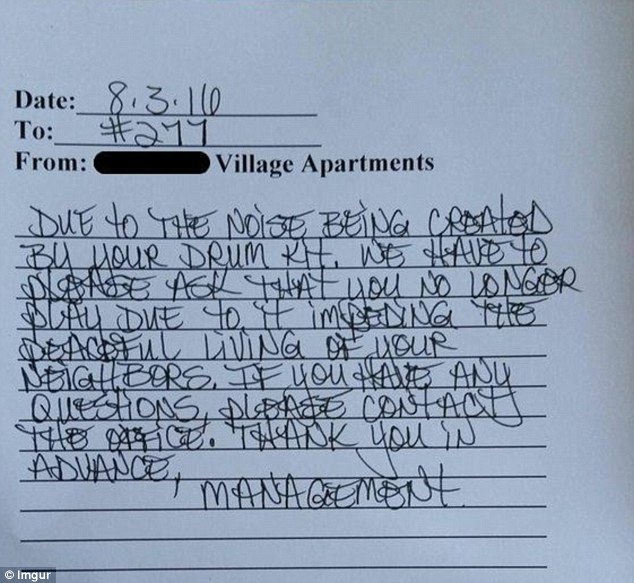 Date: 8.3.16
To: #277
From: Village Apartments
DUE to THE NOISE BEING CREATED
BY YOUR DRUM KIT, WE HAVE TO
PLEASE ASK THAT YOU NO LONGER
PLAY DUE TO IT IMPEDING THE
PEACEFUL LIVING OF YOUR
NEIGHBORS. IF YOU HAVE ANY
QUESTIONS, PLEASE CONTACT
THE OFFICE. THANK YOU IN
ADVANCE,
MANAGEMENT.
© Imgur